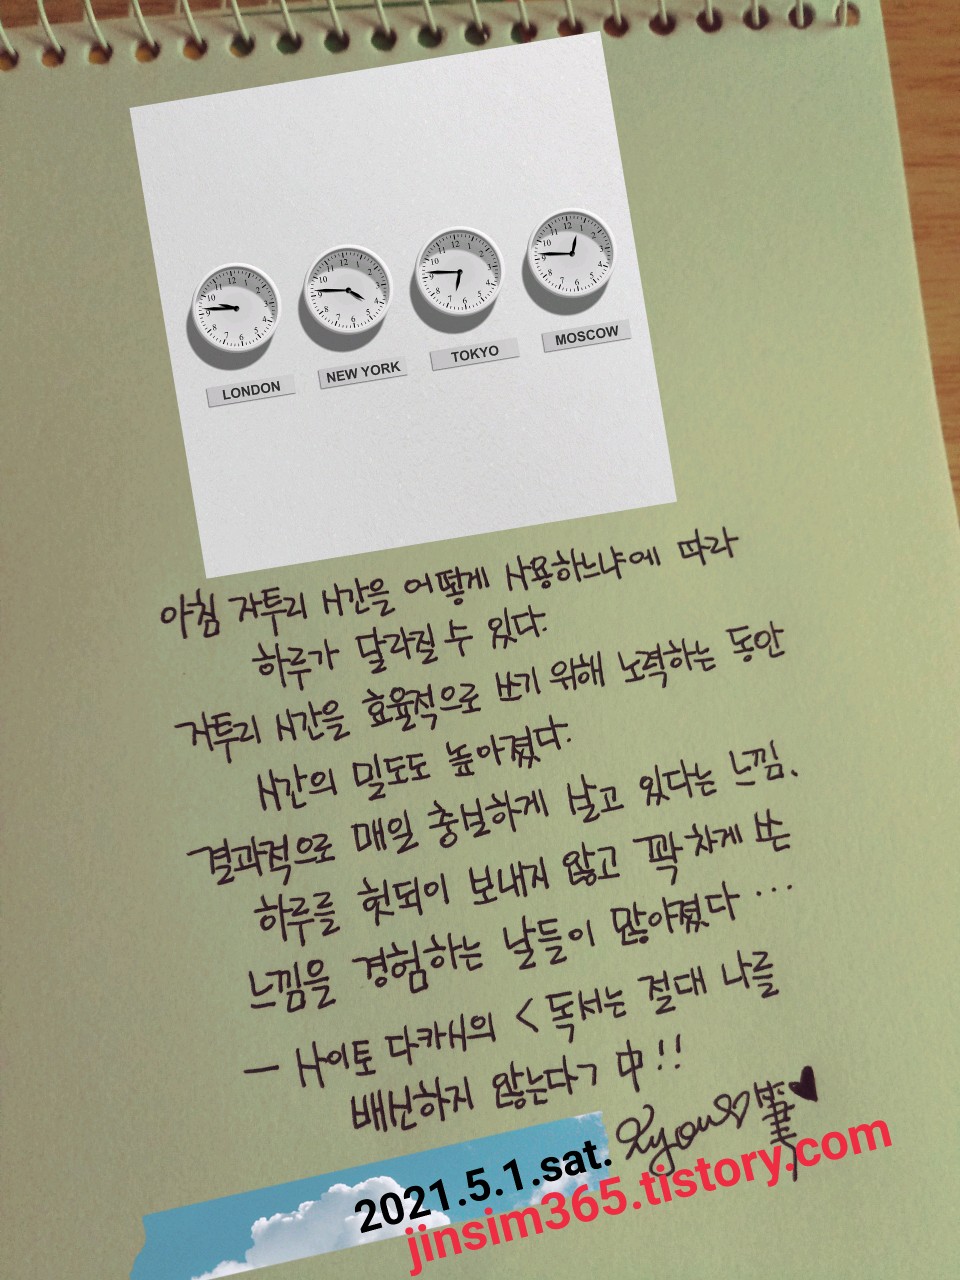 LONDON
NEW YORK
TOKYO
MOSCOW
아침 자투리 시간을 어떻게 사용하느냐에 따라
하루가 달라질 수 있다.
자투리 시간을 효율적으로 쓰기 위해 노력하는 동안
시간의 밀도도 높아졌다.
결과적으로 매일 충실하게 살고 있다는 느낌.
하루를 헛되이 보내지 않고 꽉 차게 쓴
느낌을 경험하는 날들이 많아졌다 ...
— 사이토 다카시의 < 독서는 절대 나를
배신하지 않는다> 中!!
2021.5.1.sat.
jinsim365.tistory.com